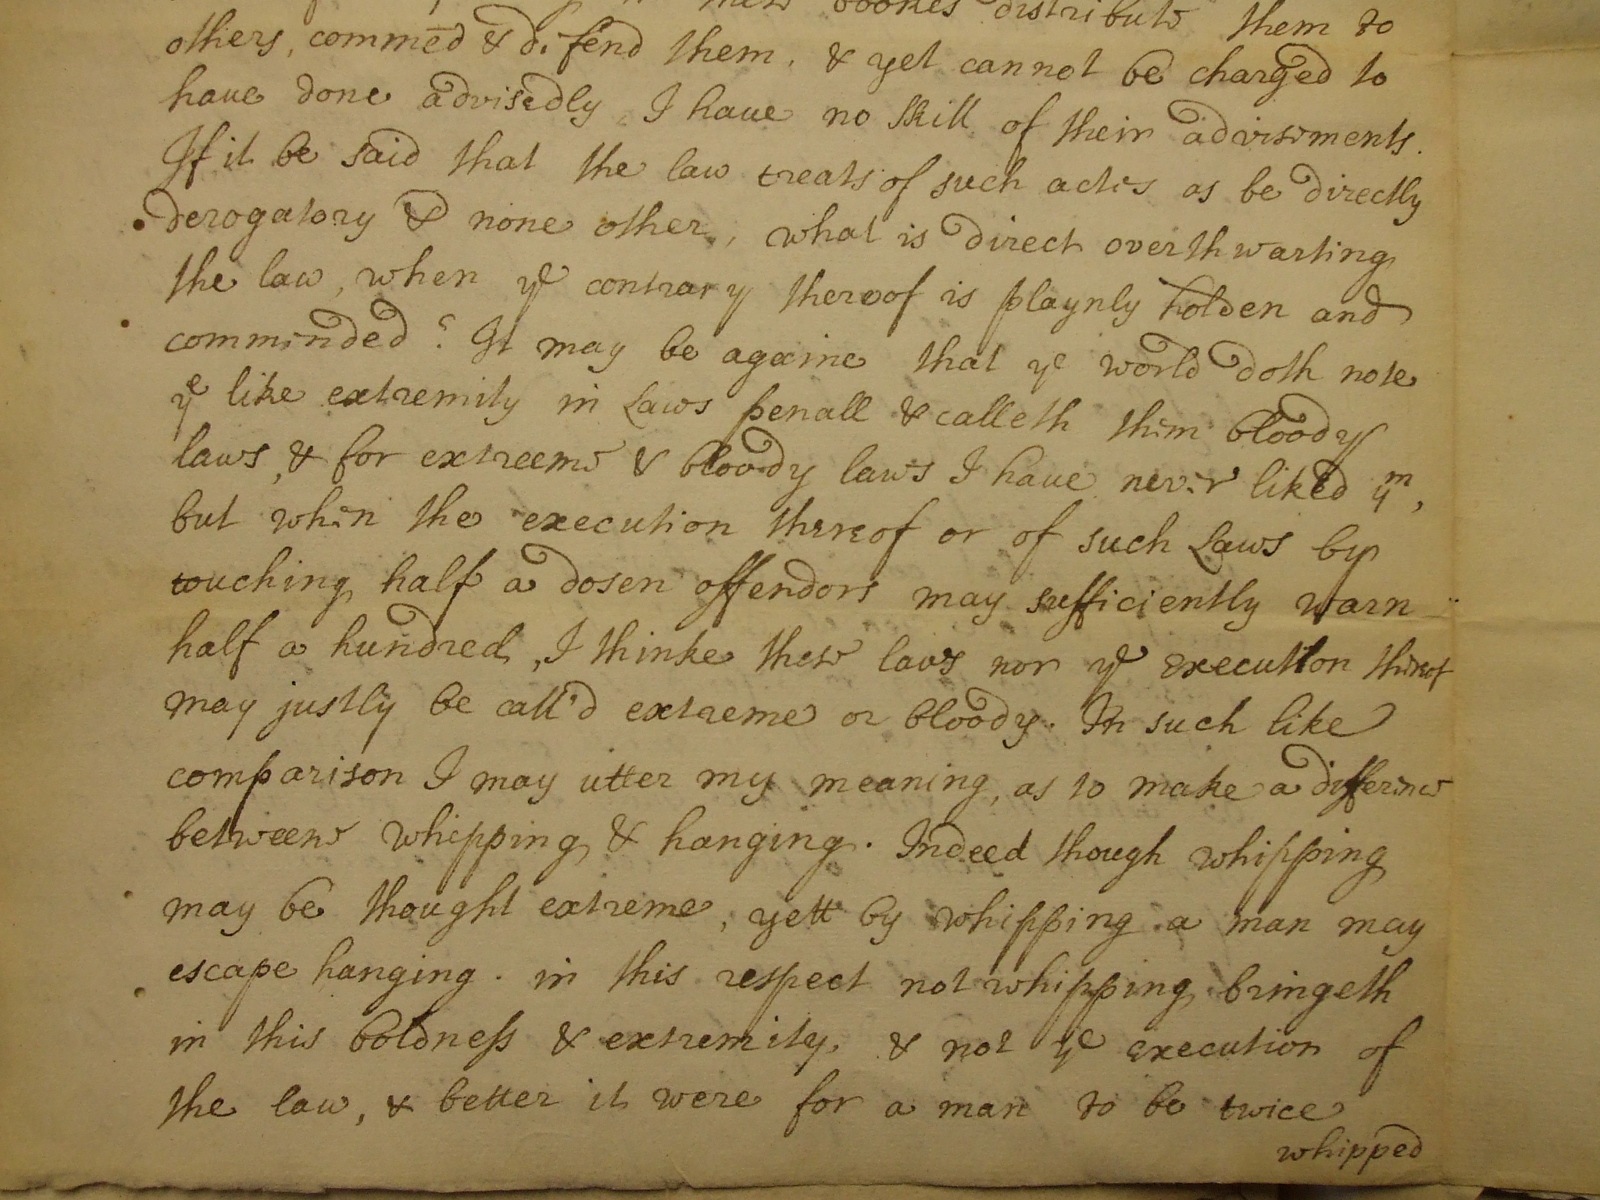 these bookes distribute them to
others, commēd & defend them, & yet cannot be charged to
haue done advisedly I haue no skill of their advisements.
If it be said that the law treats of such actes as be directly
derogatory & none other, what is direct overthwarting
the law, when yᵉ contrary thereof is playnly holden and
commended? It may be againe that yᵉ world doth note
yᵉ like extremity in Laws penall & calleth them bloody
laws, & for extreeme & bloody laws I haue never liked yᵐ,
but when the execution thereof or of such Laws by
touching half a dosen offendors may sufficiently warn
half a hundred, I thinke these laws nor yᵉ execution thereof
may justly be call'd extreme or bloody. In such like
comparison I may utter my meaning, as to make a difference
betweene whipping & hanging. Indeed though whipping
may be thought extreme, yett by whipping a man may
escape hanging. in this respect not whipping bringeth
in this boldneſs & extremity, & not yᵉ execution of
the law, & better it were for a man to be twice
whipped